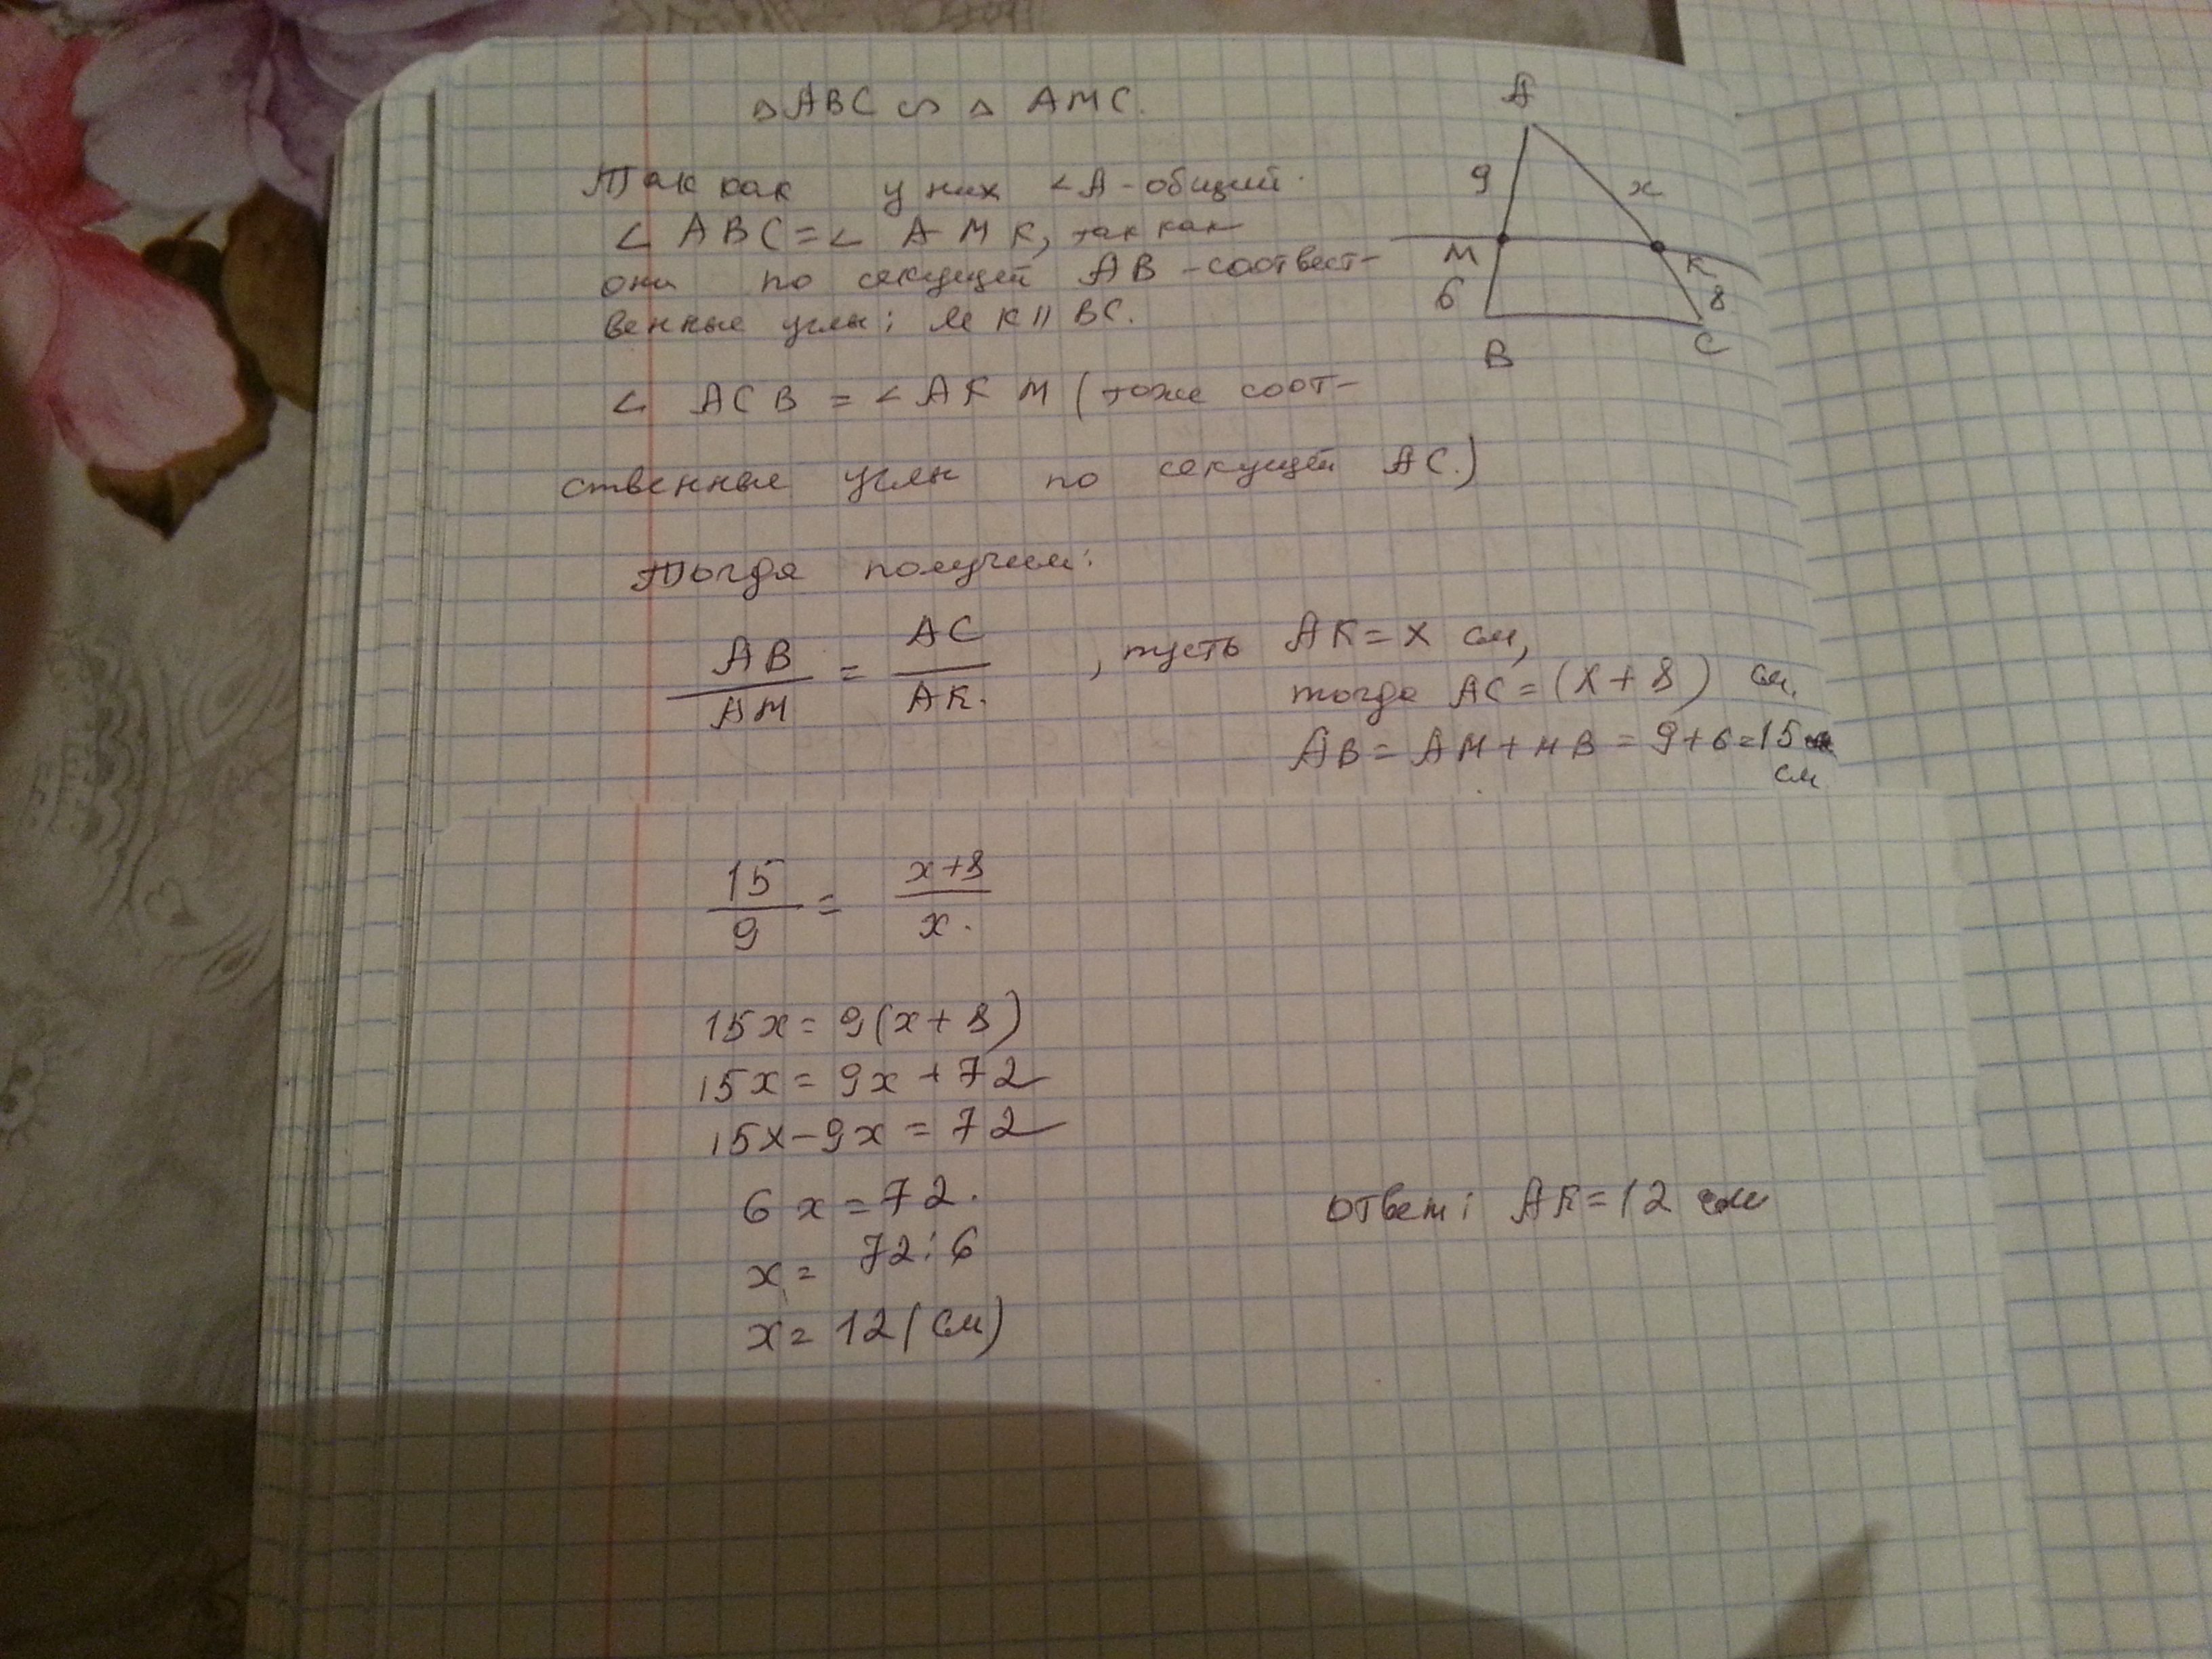 △ ABC ∽ △ AMC.
Так как у них <A - общий.
< ABC = < AMK, так как
они по секущей AB - соответст-
венные углы; MK || BC.
< ACB = < AKM (тоже соот-
ственные углы по секущей AC.)
Тогда получим:
AB/AM = AC/AK. , пусть AK = x см,
тогда AC = (x + 8) см.
AB = AM + MB = 9 + 6 = 15
см
15/9 = x+8/x.
15x = 9(x + 8)
15x = 9x + 72
15x - 9x = 72
6x = 72.
x = 72 : 6
x = 12 (см)
ответ: AK = 12 см
A
9
x
M
K
6
8
B
C